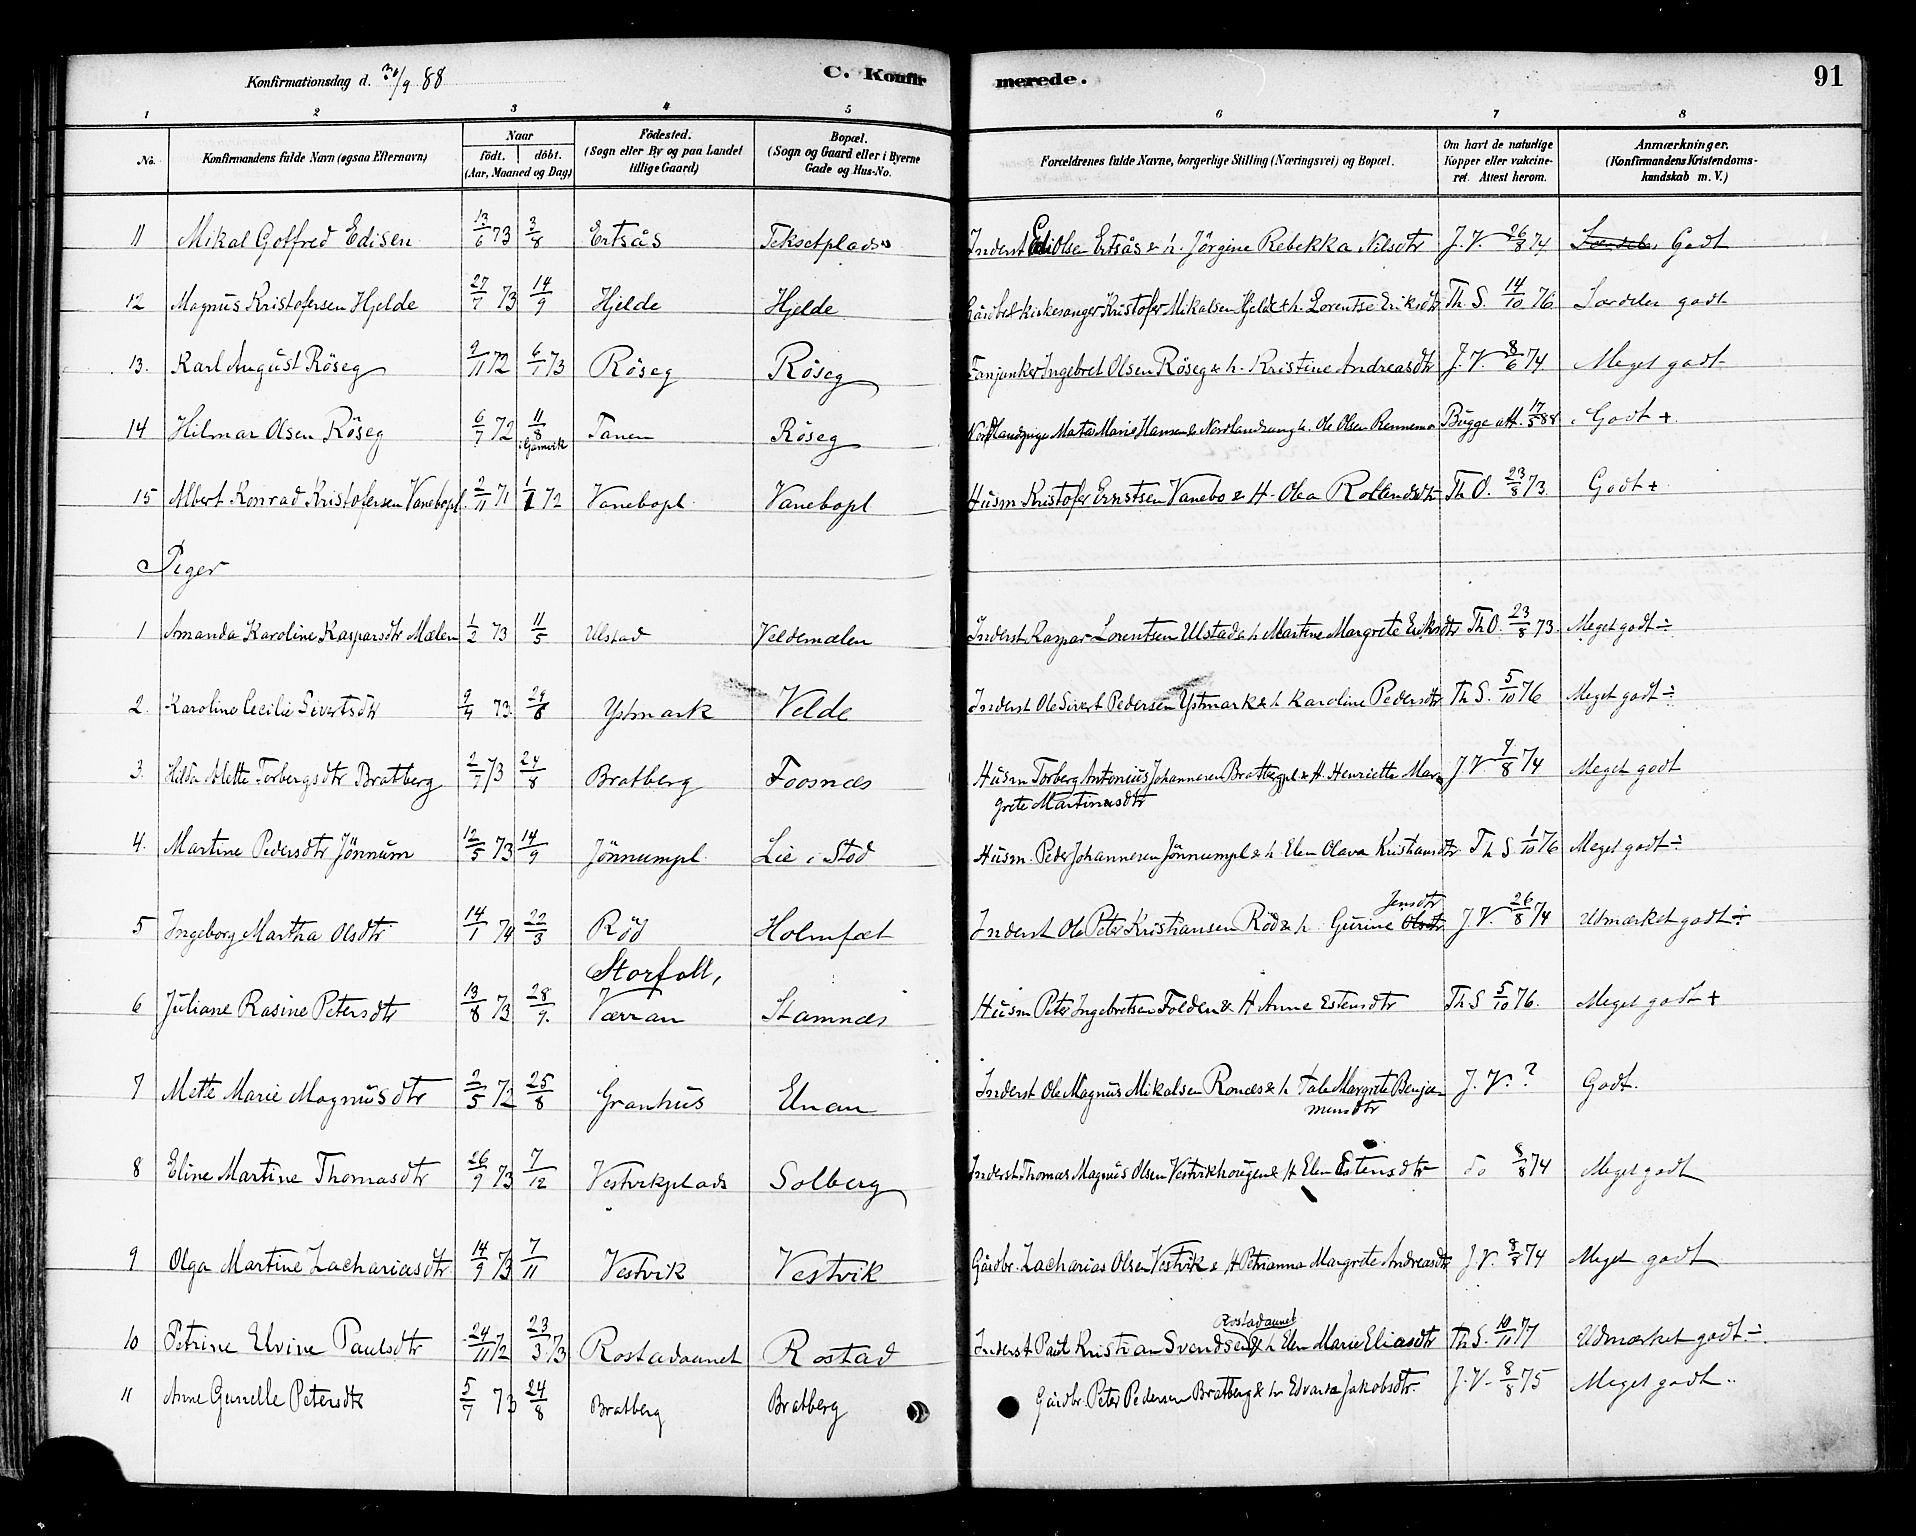 Konfirmationsdag d. 30/9 88 C. Konfir merede. 91
1 2 3 4 5 6 7 8
No. Konfirmandens fulde Navn (ogsaa Efternavn) Naar födt. döbt. (Aar, Maaned og Dag) Födested. (Sogn eller By og paa Landet tillige Gaard) Bopæl. (Sogn og Gaard eller i Byerne Gade og Hus-No. Forældrenes fulde Navne, borgerlige Stilling (Næringsvei) og Bopæl. Om havt de naturlige Kopper eller vakcineret. Attest herom. Anmærkninger. (Konfirmandens Kristendomskundskab m. V.)
11 Mikal Gotfred Edisen 13/6 73 3/8 Ertsås Teksetplads Inderst Edi Olsen Ertsås & h. Jörgine Rebekka Nilsdtr J. V. 26/8 74. Godt
12 Magnus Kristofersen Hjelde 27/7 73 14/9 Hjelde Hjelde Gårdbr & kirkesanger Kristofer Mikalsen Hjelde & h. Lorentse Eriksdtr Th. S. 14/10 76 Særdeles godt
13. Karl August Röseg 9/11 72 6/1 73 Röseg Röseg Fanjunker Ingebret Olsen Röseg & h. Kristine Andreasdtr J. V. 8/6 74. Meget godt
14 Hilmar Olsen Röseg 6/7 72 11/8 i Gamvik Tanen Röseg Nordlandspige Marie Hansen & Nordlandsung k. Ole Olsen Rennemo Bugge att. 17/5 88 Godt +
15 Albert Konrad Kristofersen Vanebopl. 2/11 71 1/1 72 Vanebopl. Vanebopl Husm Kristofer Ernstsen Vanebo & H. Olea Th O. 23/8 73. Godt +
Piger
1 Amanda Karoline Kasparsdtr Mælen 1/2 73 11/5 Ulstad Veldemælen Inderst Kaspar Lorentsen Ulstad & h Martine Margrete Eriksdtr Th O. 23/8 73. Meget godt ÷
2. Karoline Cecilie Sivertsdtr 9/4 73. 29/8 Ystmark Velde Inderst Ole Sivert Pedersen Ystmark & h Karoline Pedersdtr Th S. 5/10 76 Meget godt ÷
3. Hilda Alette Torbergsdtr Bratberg 2/7 73 24/8 Bratberg Foosnæs Husm Torberg Antonius Johannesen Bratbergpl & H. Henriette Mar
grete Martinusdtr J. V. 9/8 74 Meget godt
4. Martine Pedersdtr Jönnum 12/5 73 14/9 Jönnumpl. Lie i Stod Husm. Peder Johannesen Jönnumpl & h Elen Olava Kristiansdtr Th S 1/10 76 Meget godt ÷
5 Ingeborg Martha Olsdtr 14/1 74 22/3 Röd Holmfæt Inderst Ole Peter Kristiansen Röd & h. Gurine Olsdtr Jensdtr J. V. 26/8 74 Utmærket godt ÷
6 Juliane Rasine Petersdtr 13/8 73 28/9. Storfall, Værran Stamnæs Husm Peter Ingebretsen Folden & H Anne Estensdtr Th S 5/10 76. Meget godt +
7 Mette Marie Magnusdtr 2/5 72 25/8 Granhus Elnan Inderst Ole Magnus Mikalsen Ronæs & h Tale Margrete Benja
mensdtr J. V. ? Godt.
8 Eline Martine Thomasdtr 26/9 73 7/12 Vestvikplads Solberg Inderst Thomas Magnus Olsen Vestvikhougen & H Elen Estensdtr do 8/8 74 Meget godt
9 Olga Martine Zachariasdtr 14/9 73 7/11 Vestvik Vestvik Gårdbr. Zacharias Olsen Vestvik & H Petrianna Margrete Andreasdtr J. V. 8/8 74 Meget godt
10 Petrine Elvine Paulsdtr 24/11 72 23/3 73 Rostadaunet Rostad Inderst Paul Kristian Svendsen Rostadaunet & h Elen Marie Eliasdtr Th S. 10/11 77 Udmærket godt ÷.
11 Anne Gunelle Petersdtr 5/7 73 24/8 Bratberg Bratberg Gårdbr. Peter Pedersen Bratberg & h. Edvarda Jakobsdtr. J. V. 8/8 75 Meget godt